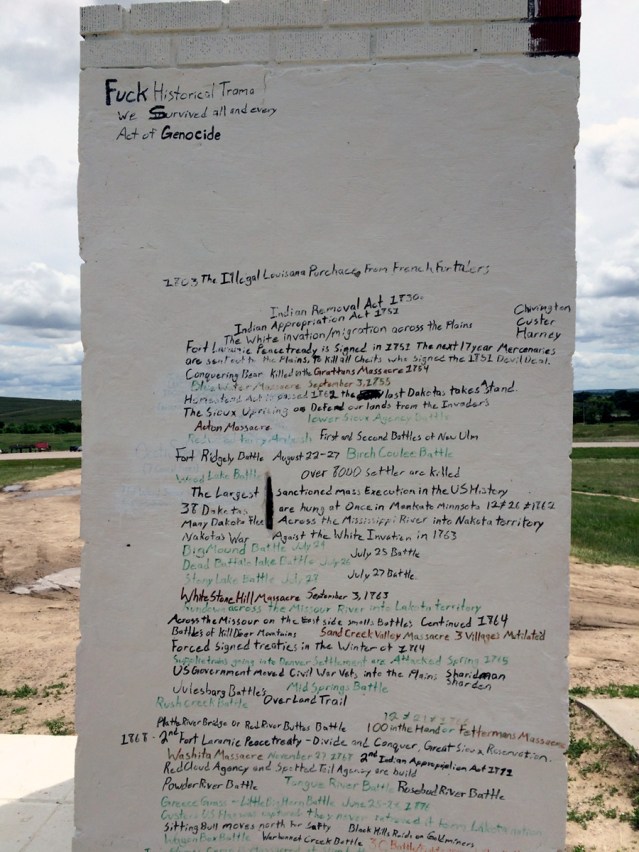 Fuck Historical Trama!
We Survived all and every
Act of Genocide
1803 The Illegal Louisana Purchace From French Fur
Indian Removal Act 1830
Indian Appropriation Act 1851
The White invation/migration across the Plains
Chivington
Custer
Harney
Fort Laramie Peace tready is Signed in 1851 The next 17 year Mercenaries
are sent out to the Plains, to Kill all Cheifs who signed the 1851 Devil Deal.
Conquering Bear Killed in the Grattans Massacre 1854
Blue Water Massacre September 3, 1855
Homestead Act is passed 1862 the last Dakotas takes A stand.
The Sioux Uprising or Defend our lands from the Invaders
lower Sioux Agency Battle
Acton Massacre
Redwood Ferry Ambush First and Second Battles of New Ulm
Fort Ridgely Battle August 22-27 Birch Coulee Battle
Wood Lake Battle Over 8000 settler are Killed
The Largest sanctioned mass Execution in the US History
38 Dakotas are hung at Once in Mankato Minnsota 12#26#1862
Many Dakota flee Across the Mississippi River into Nakota territory
Nakota's War Agaist the White Invation in 1863
Big Mound Battle July 24 July 25 Battle
Dead Buffalo Lake Battle July 26
Stony Lake Battle July 28 July 27 Battle
White Stone Hill Massacre September 3, 1963
Rundown across the Missour River into Lakota territory
Across the Missouri on the East side smalls Battles Continued 1864
Battles of Kill Deer Mountains Sand Creek Valley Massacre 3 Villages Mutilated
Forced signed treaties in the Winter of 1864
Supplietrains going into Denver Settlement are Attacked Spring 1865
US Government Moved Civil War Vets into the Plains Sharidman
Sharden
Julesburg Battle's Mid Springs Battle
Rush Creek Battle OverLand Trail
Platte River Bridge or Red River Buttes Battle 100 in the Hand or Fettermans Massacre
12#21#1866
1868 - 2nd Fort Laramie Peace treaty - Divide and Conquer, Great Sioux Reservation.
Washita Massacre November 27 1868 2nd Indian Appropriation Act 1871
Red Cloud Agency and Spotted Tail Agency are build
Powder River Battle Tongue River Battle Rosebud River Battle
Greece Grass - Little Big Horn Battle June 25-26 1876
Custers US Flag was captured they never retrieved it from Lakota nation
Sitting Bull moves north for Safty Black Hills Raid on Goldminers
Wagon Box Battle Warbonnet Creek Battle